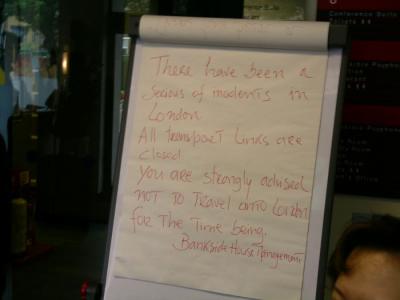 There have been a
Serious of incidents in
London
All transport links are
closed
You are strongly advised
NOT TO Travel onto London
for The Time being.
Bankside House Management
Conference Suite
Toilets